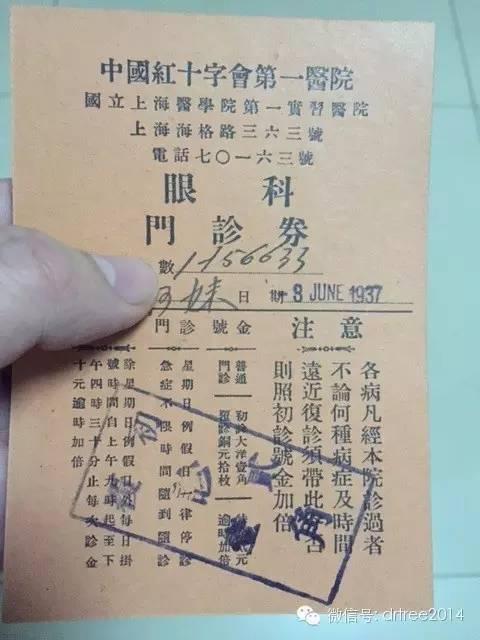 中國紅十字會第一醫院
國立上海醫學院第一實習醫院
上海海格路三六三號
電話七〇一六三號
眼科
門診券
數 1156633
妹 日期 -8 JUNE 1937
注意
各病凡經本院診過者
不論何種病症及時間
遠近復診須帶此
則照初診號金加倍
門診號金
普通門診 初診大洋壹角
覆診銅元拾枚 逾時加倍
元
星期日例假日一律停診
急症不限時間隨到隨診
除星期日例假日外每日掛
號時間自上午九時起至下
午四時三十分止每次診金
十元逾時加倍
初
角
微信号: drtree2014